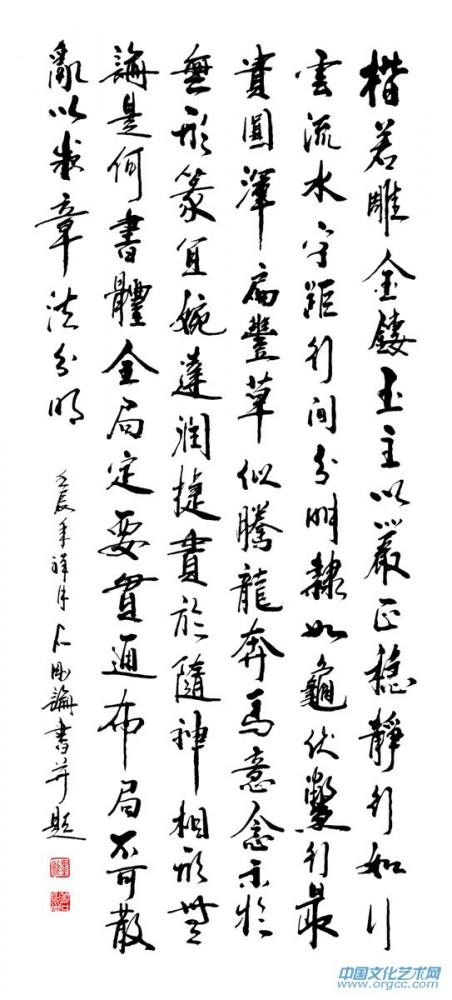 楷若雕金鏤玉主以嚴正穩靜行如行
雲流水字距行間分明隸如龜伏鱉行最
貴圓渾扁豐草似騰龍奔馬意念示於
無形篆宜婉達潤捷貴於隨神相形無
論是何書體全局定要貫通布局不可散
亂以章法分明
壬辰年祥月論書并題
中国文化艺术网
www.orgcc.com